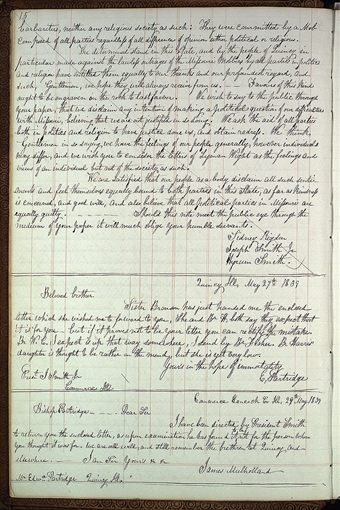 15
barbarities, neither any religious society as such: They were committed by a Mob
composed of all parties regardless of all difference of opinion either political or religious.
The determined stand in this State, and by the people of Quincy in
particular made against the lawless outrages of the Missouri Mobbers by all parties in politics
and religion have entitled them equally to our thanks and our profoundest regard, and
such, Gentlemen, we hope they will always receive from us. Favours of this kind
ought to be engraven on the rock to last forever. We wish to say to the public through
your paper, that we disclaim any intention of making a political question of our difficulties
with Missouri, believing that we are not justified in so doing. We ask the aid of all parties
both in politics and religion to have justice done us, and obtain redress. We think,
Gentlemen in so saying, we have the feelings of our people, generally, however individuals
may differ, and we wish you to consider the letters of Lyman Wight as the feelings and
views of an individual, but not of the society as such.
We are satisfied that our people as a body disclaim all such senti-
ments and feel themselves equally bound to both parties in this State, as far as kindness
is concerned, and good will, and also believe that all political parties in Missouri are
equally guilty. Should this note meet the public eye through the
medium of your paper it will much oblige your humble servants.
Sidney Rigdon
Joseph Smith Jr
Hyrum Smith.
Quincy Ills, May 27th 1839
Beloved brother
Sister Bronson has just handed me the enclosed
letter which she wished me to forward to you. She and Mr. B. both say they expect that
it is for you - but if it proves not to be your letter you can rectify the mistake.
Dr. W. C. I expect is up that way somewhere, I send by Mr. Fisher.
daughter is thought to be rather in the mend, but she is yet very low.
Yours in the hope of immortality
E. Partridge
Prest J. Smith Jr
Commerce Ills
Commerce Hancock Co Ills, 29th May 1839
Bishop Partridge Dear Sir
I have been directed by President Smith
to return you the enclosed letter, as upon examination he has found it is not for the person whom
you thought it was for. we are all well, and still remember the brethren at Quincy, and
elsewhere. I am Sir Yours &c
James Mulholland
Mr Edwd Partridge Quincy Ills.